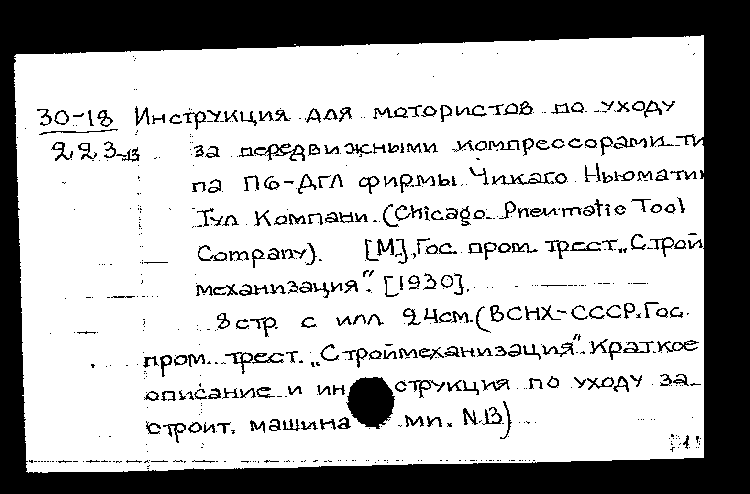 30-18 Инструкция для мотористов по уходу
223-13 за передвижными компрессорами ти
па П6-ДГЛ фирмы Чикаго Ньюмати
Тул Компани. (Chicago Pneumatic Tool
Company). [М], Гос. пром. трест „Строй
механизация". [1930].
8 стр. с илл. 24 см. (ВСНХ-СССР. Гос.
пром. трест. „Строймеханизация". Краткое
описание и ин струкция по уходу за
строит. машина ми. N13)